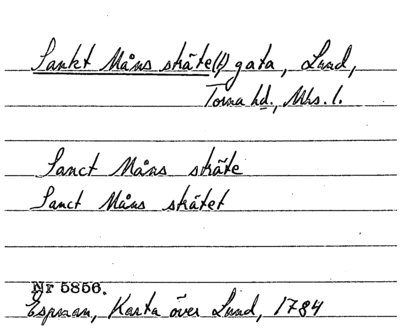 Sankt Måns sträte(t) gata, Lund,
Torna hd., Mhs. l.
Sanct Måns sträte
Sanct Måns strätet
Nr 5856.
Espman, Karta över Lund, 1784